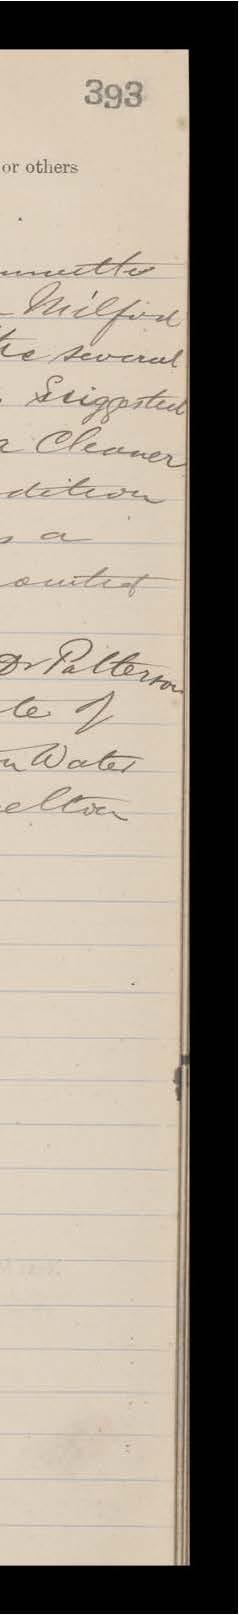 393
or others
Milford
several
Suggested
a Cleaner
dition
s a
Dr Patterson
te of
n Water
elton